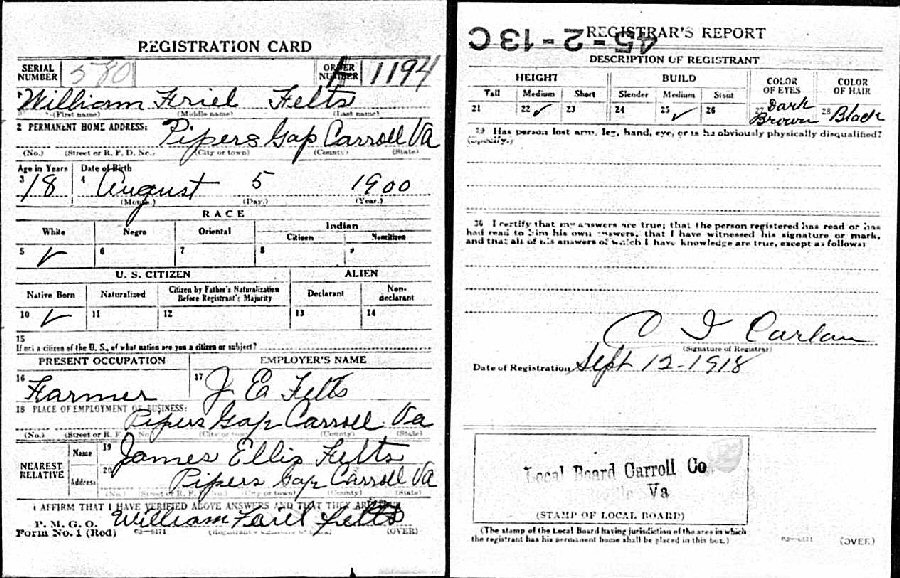 REGISTRATION CARD
SERIAL NUMBER 580 ORDER NUMBER 1194
William Friel Felts
(First name) (Middle name) (Last name)
2 PERMANENT HOME ADDRESS:
Pipers Gap Carroll Va
(No.) (Street or R. F. D. No.) (City or town) (County) (State)
Age in Years Date of Birth
3 18 4 August 5 1900
(Month.) (Day.) (Year.)
RACE
White Negro Oriental Indian
Citizen Noncitizen
5 ✓ 6 7 8 9
U. S. CITIZEN ALIEN
Native Born Naturalized Citizen by Father's Naturalization Before Registrant's Majority Declarant Non-declarant
10 ✓ 11 12 13 14
15
If not a citizen of the U. S., of what nation are you a citizen or subject?
PRESENT OCCUPATION EMPLOYER'S NAME
16 Farmer 17 J E Felts
18 PLACE OF EMPLOYMENT OR BUSINESS:
Pipers Gap Carroll Va
(No.) (Street or R. F. (City or town) (County) (State)
NEAREST RELATIVE Name 19 James Ellis Felts
Address 20 Pipers Gap Carroll Va
(No.) (Street or R. F. D. No.) (City or town) (County) (State)
I AFFIRM THAT I HAVE VERIFIED ABOVE ANSWERS AND THAT THEY ARE
William Felts
P. M. G. O.
Form No. 1 (Red) (OVER)
45-2-13C
REGISTRAR'S REPORT
DESCRIPTION OF REGISTRANT
HEIGHT BUILD COLOR OF EYES COLOR OF HAIR
Tall Medium Short Slender Medium Stout
21 22 ✓ 23 24 25 ✓ 26 27 Dark Brown 28 Black
29 Has person lost arm, leg, hand, eye, or is he obviously physically disqualified?
(Specify.)
30 I certify that my answers are true; that the person registered has read or has
had read to him his own answers, that I have witnessed his signature or mark,
and that all of his answers of which I have knowledge are true, except as follows:
C I Carlan
(Signature of Registrar)
Date of Registration Sept 12-1918
Local Board Carroll Co
Va
(STAMP OF LOCAL BOARD)
(The stamp of the Local Board having jurisdiction of the area in which
the registrant has his permanent home shall be placed in this box.)
(OVER)